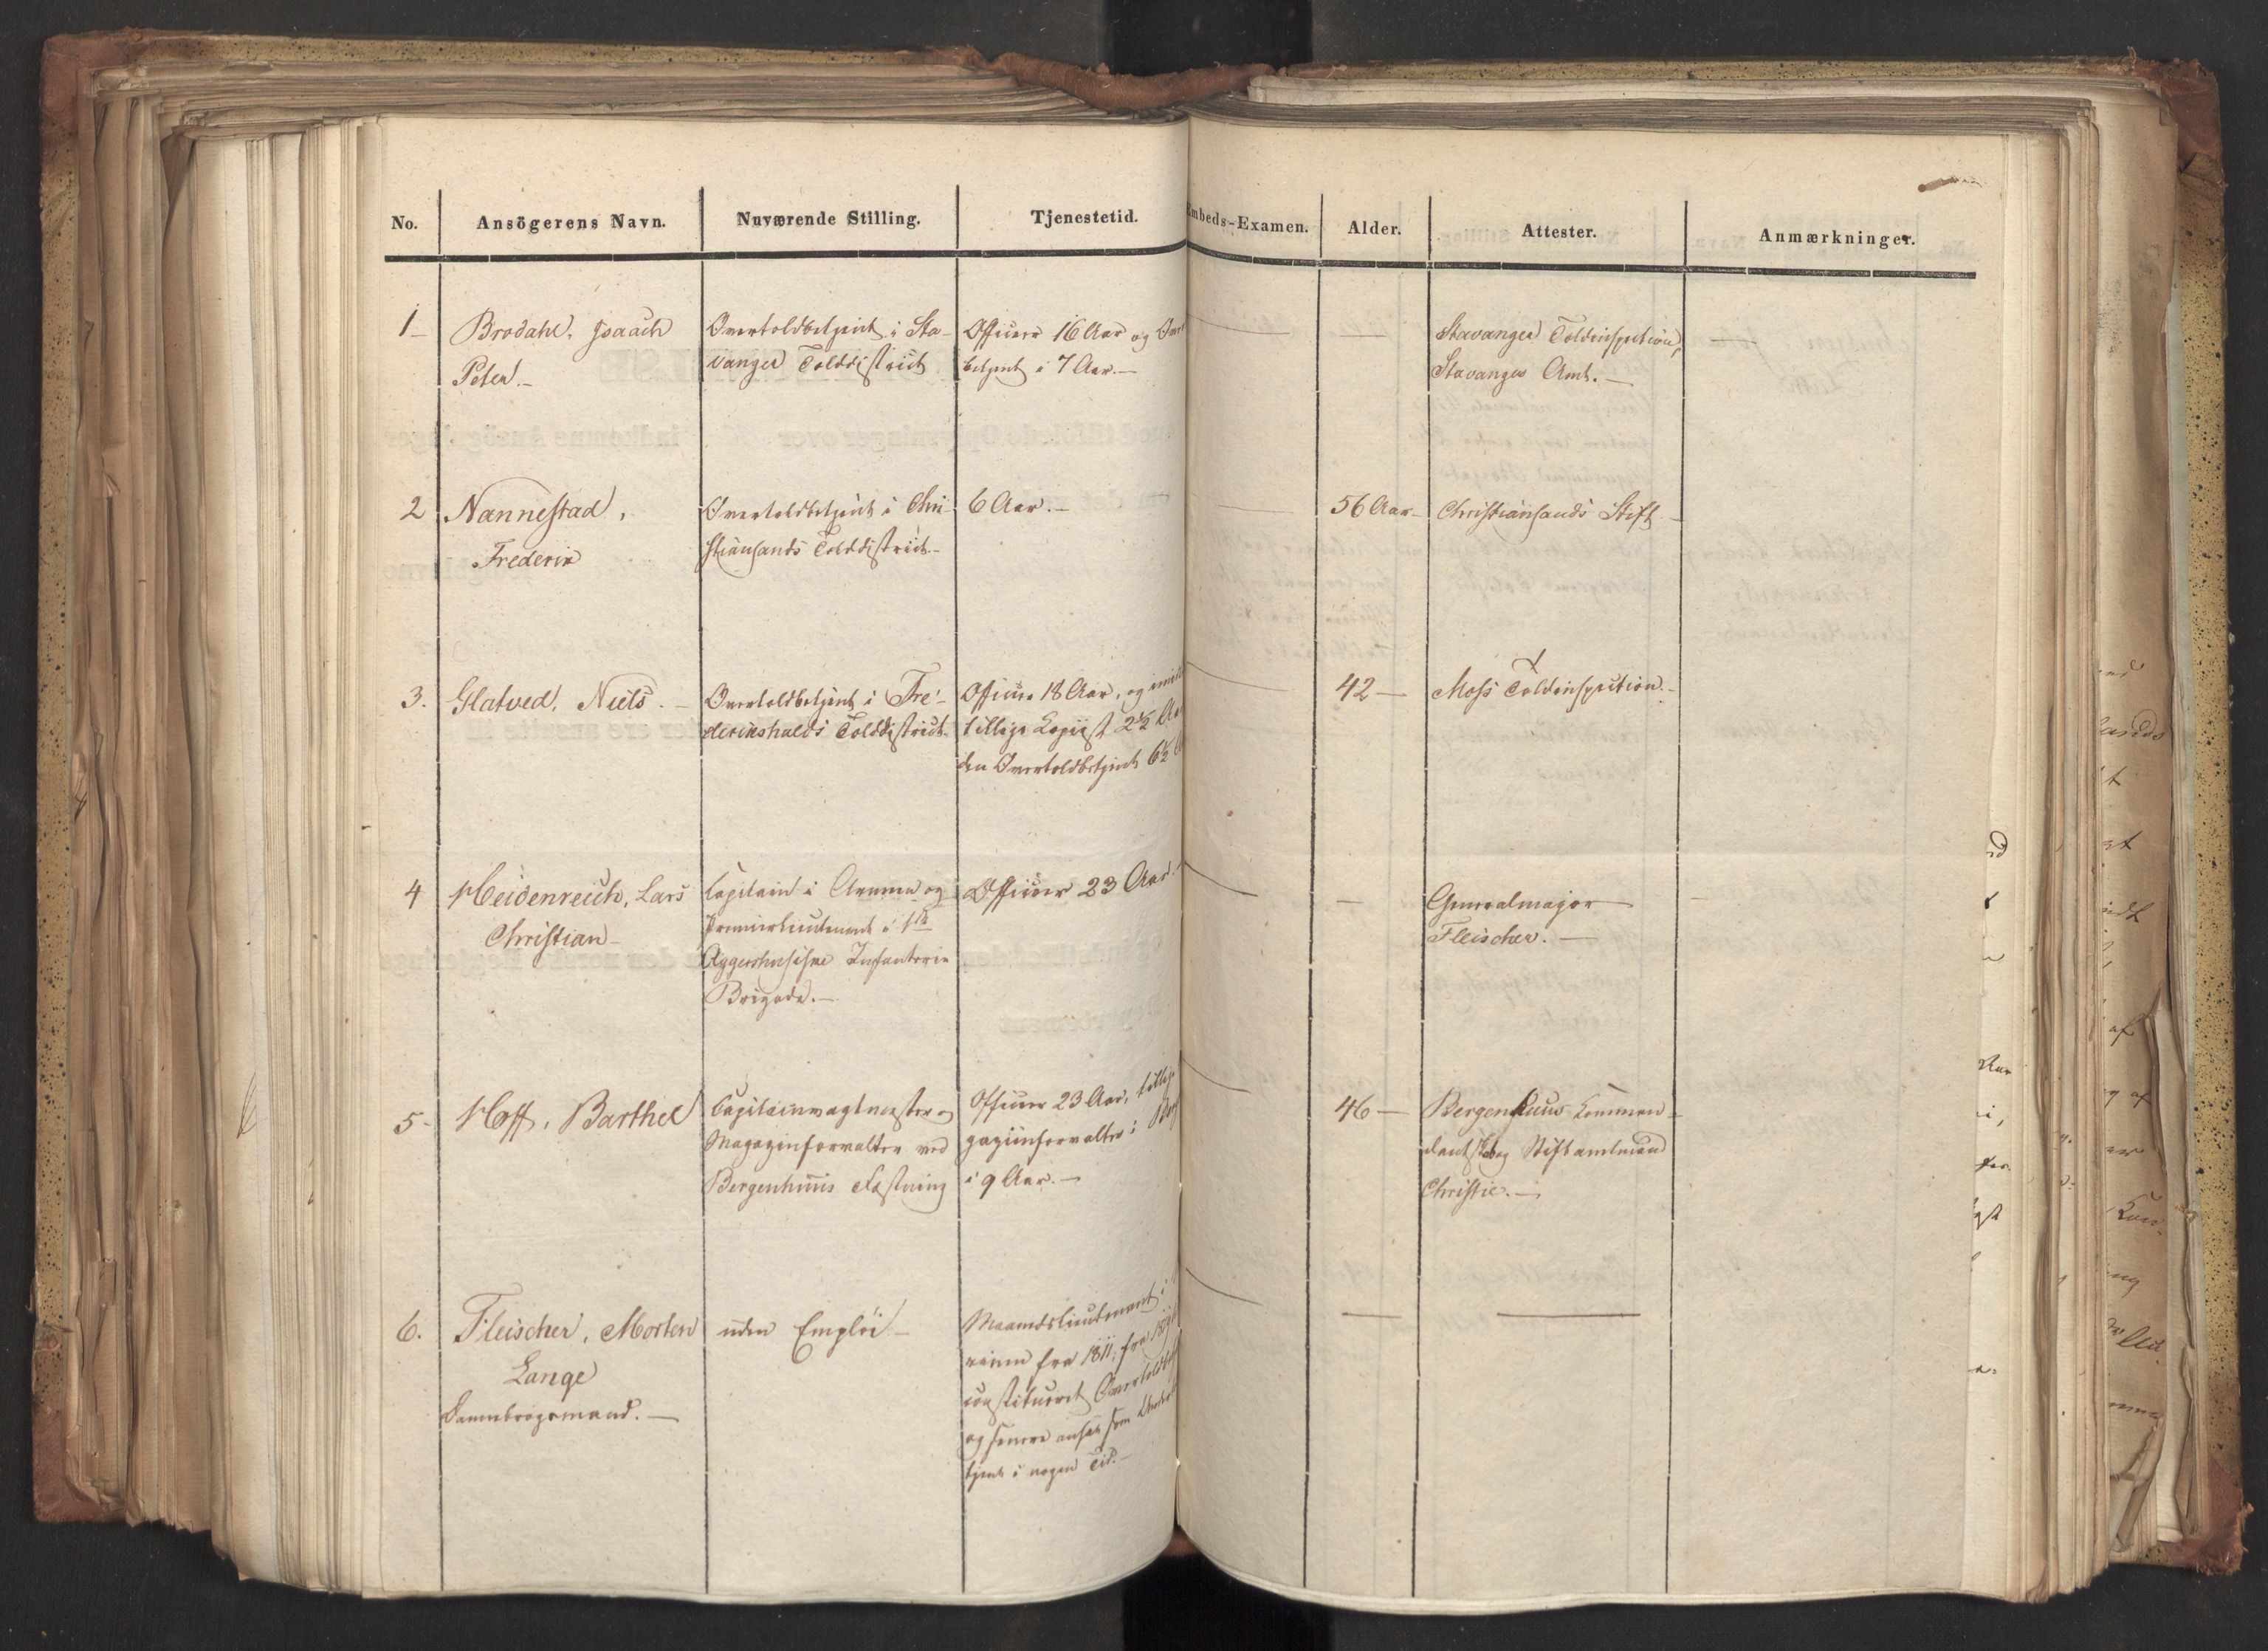 No. Ansögerens Navn. Nuværende Stilling. Tjenestetid. Embeds-Examen. Alder. Attester. Anmærkninger.
1 Brodahl, Isaach
Peter.
Overtoldbetjent i Sta-
vanger Tolddistrict
Officier 16 Aar og
betjent i 7 Aar.
Stavanger Toldinspection,
Stavanger Amt.
2 Nannestad,
Frederik
Overtoldbetjent i Chri-
stiansands Tolddistrict
6 Aar.
56 Aar
Christiansands Stift
3. Glatved, Niels.
Overtoldbetjent i Fre-
derikshalds Tolddistrict
Officier 18 Aar, og
tillige Copiist 2½
den Overtoldbetjent 6½
42
Moss Toldinspection.
4 Heidenreich, Lars
Christian
Capitain i Armeen og
Premierlieutenant i 1ste
Aggershusiske Infanterie
Brigade.
Officier 23 Aar.
Generalmajor
Fleischer.
5 Hoff, Barthel
Capitainvagtmester og
Magazinforvalter ved
Bergenhuus Fæstning
Officier 23 Aar, tillige
gazinforvalter i
i 9 Aar.
46
Bergenhuus Commen-
dantskab og Stiftamtmand
Christie.
6. Fleischer, Morten
Lange
Dannebrogsmand.
uden Emploi
Maanedslieutenant i
rinen fra 1811, fra
constitueret
og senere ansat som
tjent i nogen Tid.